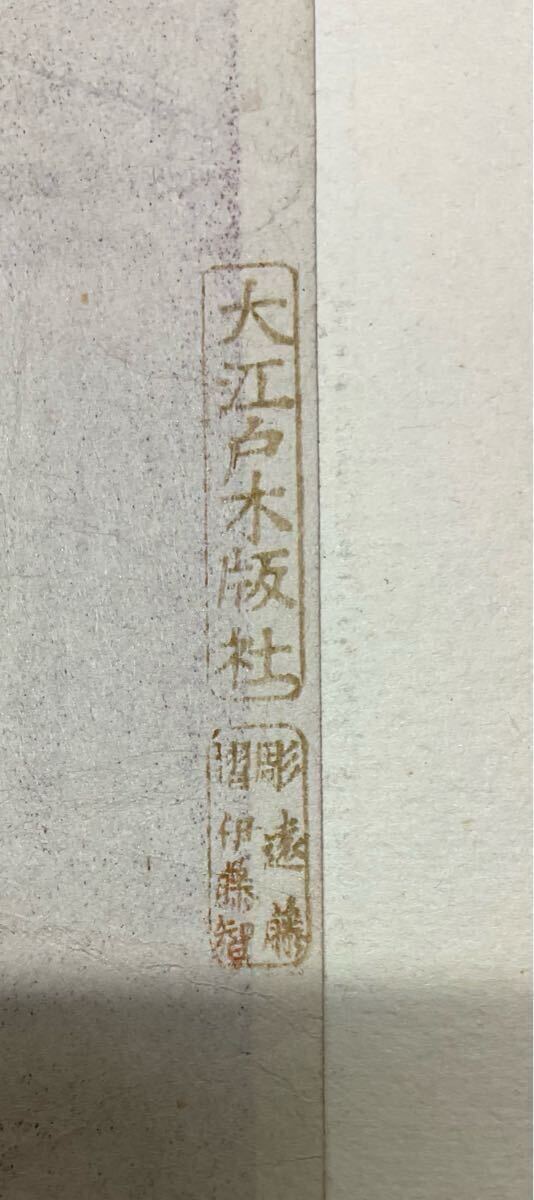 大江戸木版社
彫遠藤
摺伊藤智